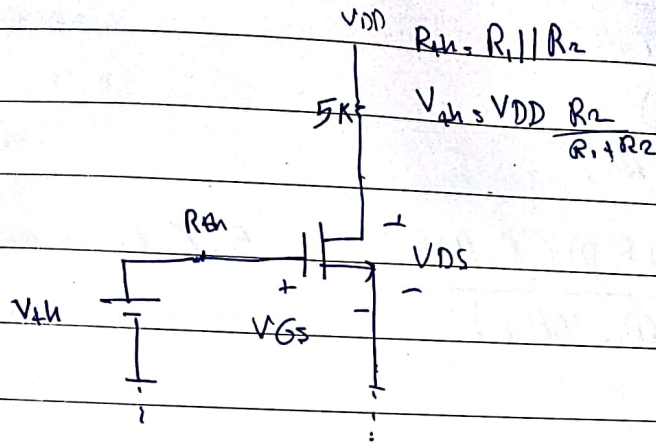 VDD
Rth = R1 || R2
5K
Vth = VDD R2
R1 + R2
Rth
+
VDS
-
Vth
+
VGS
-